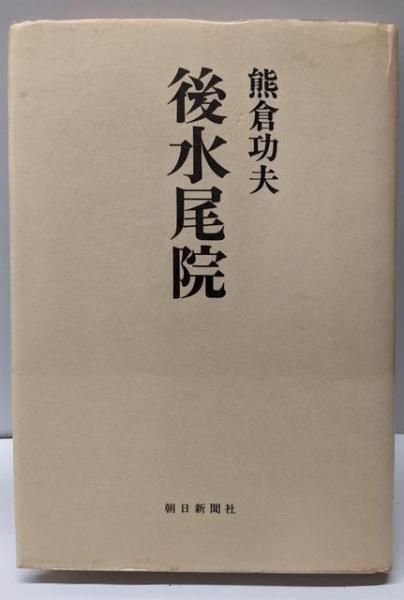 熊倉功夫
後水尾院
朝日新聞社